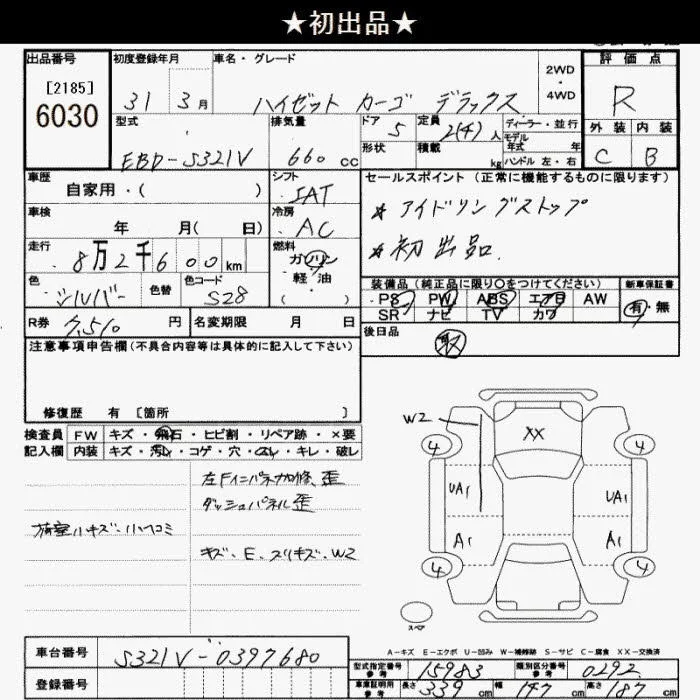 ★初出品★
出品番号
[2185]
6030
初度登録年月
31 3月
車名・グレード
ハイゼット カーゴ デラックス
2WD
・
4WD
評価点
R
型式
EBD-S321V
排気量
660 cc
ドア
5
形状
定員
2(4)人
積載
kg
ディーラー・並行
モデル
年式 年
ハンドル 左・右
外装 内装
C B
車歴
自家用・( )
シフト
IAT
セールスポイント(正常に機能するものに限ります)
★アイドリングストップ
★初出品.
車検
年 月( 日)
冷房
AC
走行
8万2千600km
燃料
ガソリン
軽油
( )
色
シルバー
色替
色コード
S28
装備品(純正品に限り○をつけてください)
PS PW ABS エアB AW
SR ナビ TV カワ
新車保証書
有・無
R券 7,510円
名変期限 月 日
後日品
取
注意事項申告欄(不具合内容等は具体的に記入して下さい)
修復歴 有 [箇所 ]
検査員 FW キズ・飛石・ヒビ割・リペア跡・×要
記入欄 内装 キズ・汚レ・コゲ・穴・スレ・キレ・破レ
左Fインパネ加修、歪
ダッシュパネル歪
荷室ハキズ・ハヘコミ
キズ、E、スリキズ、W2
W2
XX
4 4
UA1 UA1
A1 A1
4 4
スペア
A-キズ E-エクボ U-凹み W-補修跡 S-サビ C-腐食 XX-交換済
車台番号 S321V-0397680
登録番号
型式指定番号
参考
15983
類別区分番号
参考
0292
車庫証明用
参考
長さ 339cm 幅 147cm 高さ 187cm